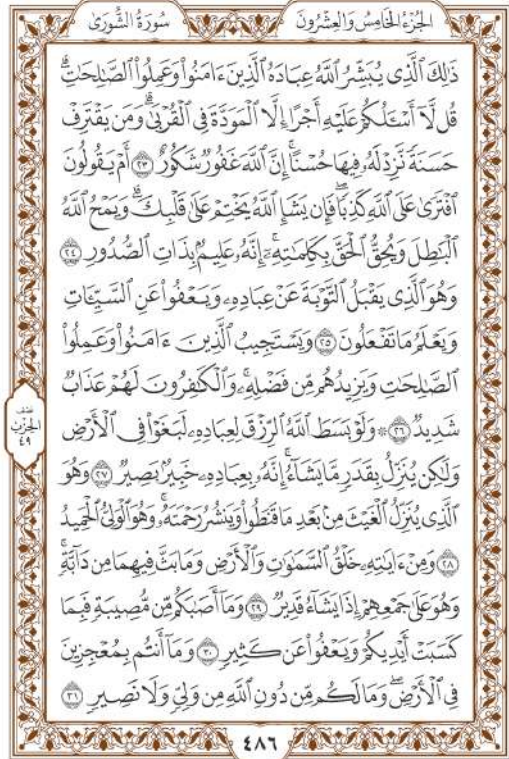 الجُزْءُ الخَامِسُ وَالعِشْرُونَ
سُورَةُ الشُّورَىٰ
ذَٰلِكَ ٱلَّذِى يُبَشِّرُ ٱللَّهُ عِبَادَهُ ٱلَّذِينَ ءَامَنُوا۟ وَعَمِلُوا۟ ٱلصَّٰلِحَٰتِ ۗ
قُل لَّآ أَسْـَٔلُكُمْ عَلَيْهِ أَجْرًا إِلَّا ٱلْمَوَدَّةَ فِى ٱلْقُرْبَىٰ ۗ وَمَن يَقْتَرِفْ
حَسَنَةً نَّزِدْ لَهُۥ فِيهَا حُسْنًا ۚ إِنَّ ٱللَّهَ غَفُورٌ شَكُورٌ ٢٣ أَمْ يَقُولُونَ
ٱفْتَرَىٰ عَلَى ٱللَّهِ كَذِبًا ۖ فَإِن يَشَإِ ٱللَّهُ يَخْتِمْ عَلَىٰ قَلْبِكَ ۗ وَيَمْحُ ٱللَّهُ
ٱلْبَٰطِلَ وَيُحِقُّ ٱلْحَقَّ بِكَلِمَٰتِهِۦٓ ۚ إِنَّهُۥ عَلِيمٌۢ بِذَاتِ ٱلصُّدُورِ ٢٤
وَهُوَ ٱلَّذِى يَقْبَلُ ٱلتَّوْبَةَ عَنْ عِبَادِهِۦ وَيَعْفُوا۟ عَنِ ٱلسَّيِّـَٔاتِ
وَيَعْلَمُ مَا تَفْعَلُونَ ٢٥ وَيَسْتَجِيبُ ٱلَّذِينَ ءَامَنُوا۟ وَعَمِلُوا۟
ٱلصَّٰلِحَٰتِ وَيَزِيدُهُم مِّن فَضْلِهِۦ ۚ وَٱلْكَٰفِرُونَ لَهُمْ عَذَابٌ
شَدِيدٌ ٢٦ ۞ وَلَوْ بَسَطَ ٱللَّهُ ٱلرِّزْقَ لِعِبَادِهِۦ لَبَغَوْا۟ فِى ٱلْأَرْضِ
وَلَٰكِن يُنَزِّلُ بِقَدَرٍ مَّا يَشَآءُ ۚ إِنَّهُۥ بِعِبَادِهِۦ خَبِيرٌۢ بَصِيرٌ ٢٧ وَهُوَ
ٱلَّذِى يُنَزِّلُ ٱلْغَيْثَ مِنۢ بَعْدِ مَا قَنَطُوا۟ وَيَنشُرُ رَحْمَتَهُۥ ۚ وَهُوَ ٱلْوَلِىُّ ٱلْحَمِيدُ
٢٨ وَمِنْ ءَايَٰتِهِۦ خَلْقُ ٱلسَّمَٰوَٰتِ وَٱلْأَرْضِ وَمَا بَثَّ فِيهِمَا مِن دَآبَّةٍ ۚ
وَهُوَ عَلَىٰ جَمْعِهِمْ إِذَا يَشَآءُ قَدِيرٌ ٢٩ وَمَآ أَصَٰبَكُم مِّن مُّصِيبَةٍ فَبِمَا
كَسَبَتْ أَيْدِيكُمْ وَيَعْفُوا۟ عَن كَثِيرٍ ٣٠ وَمَآ أَنتُم بِمُعْجِزِينَ
فِى ٱلْأَرْضِ ۖ وَمَا لَكُم مِّن دُونِ ٱللَّهِ مِن وَلِىٍّ وَلَا نَصِيرٍ ٣١
نصف
الحزب
٤٩
٤٨٦